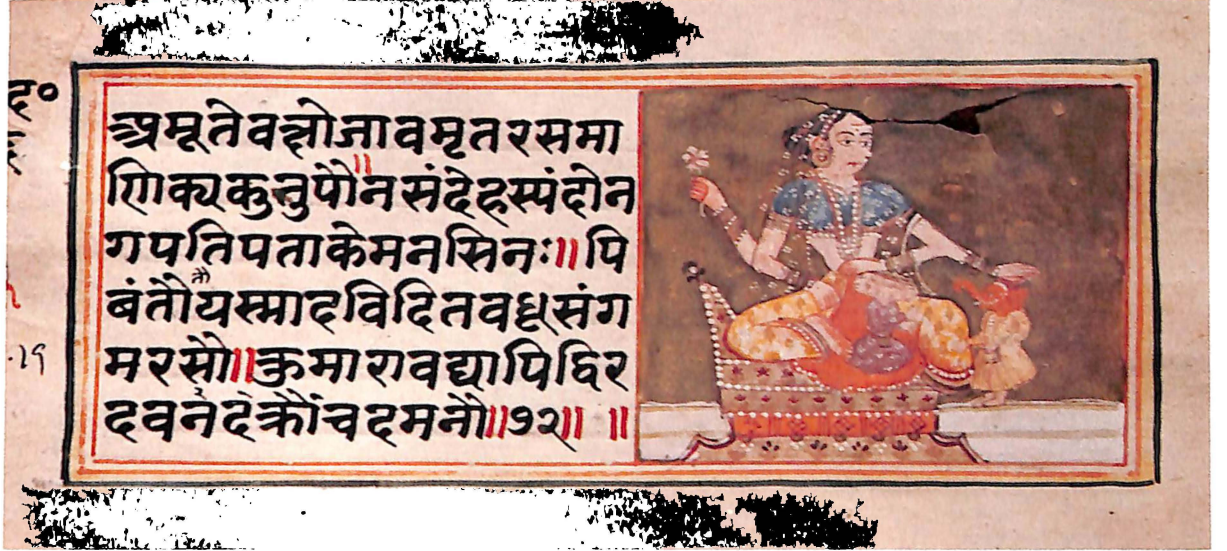 द॰
अमूतेवक्षोजावमृतरसमा
णिक्यकुतुपौनसंदेहस्पंदोन
गपतिपताकेमनसिनः॥पि
बंतौ
तौ
यस्मादविदितवधूसंग
मरसौ॥कुमारावद्यापिद्विर
दवनदंक्रौंचदमनौ॥७२॥ ॥